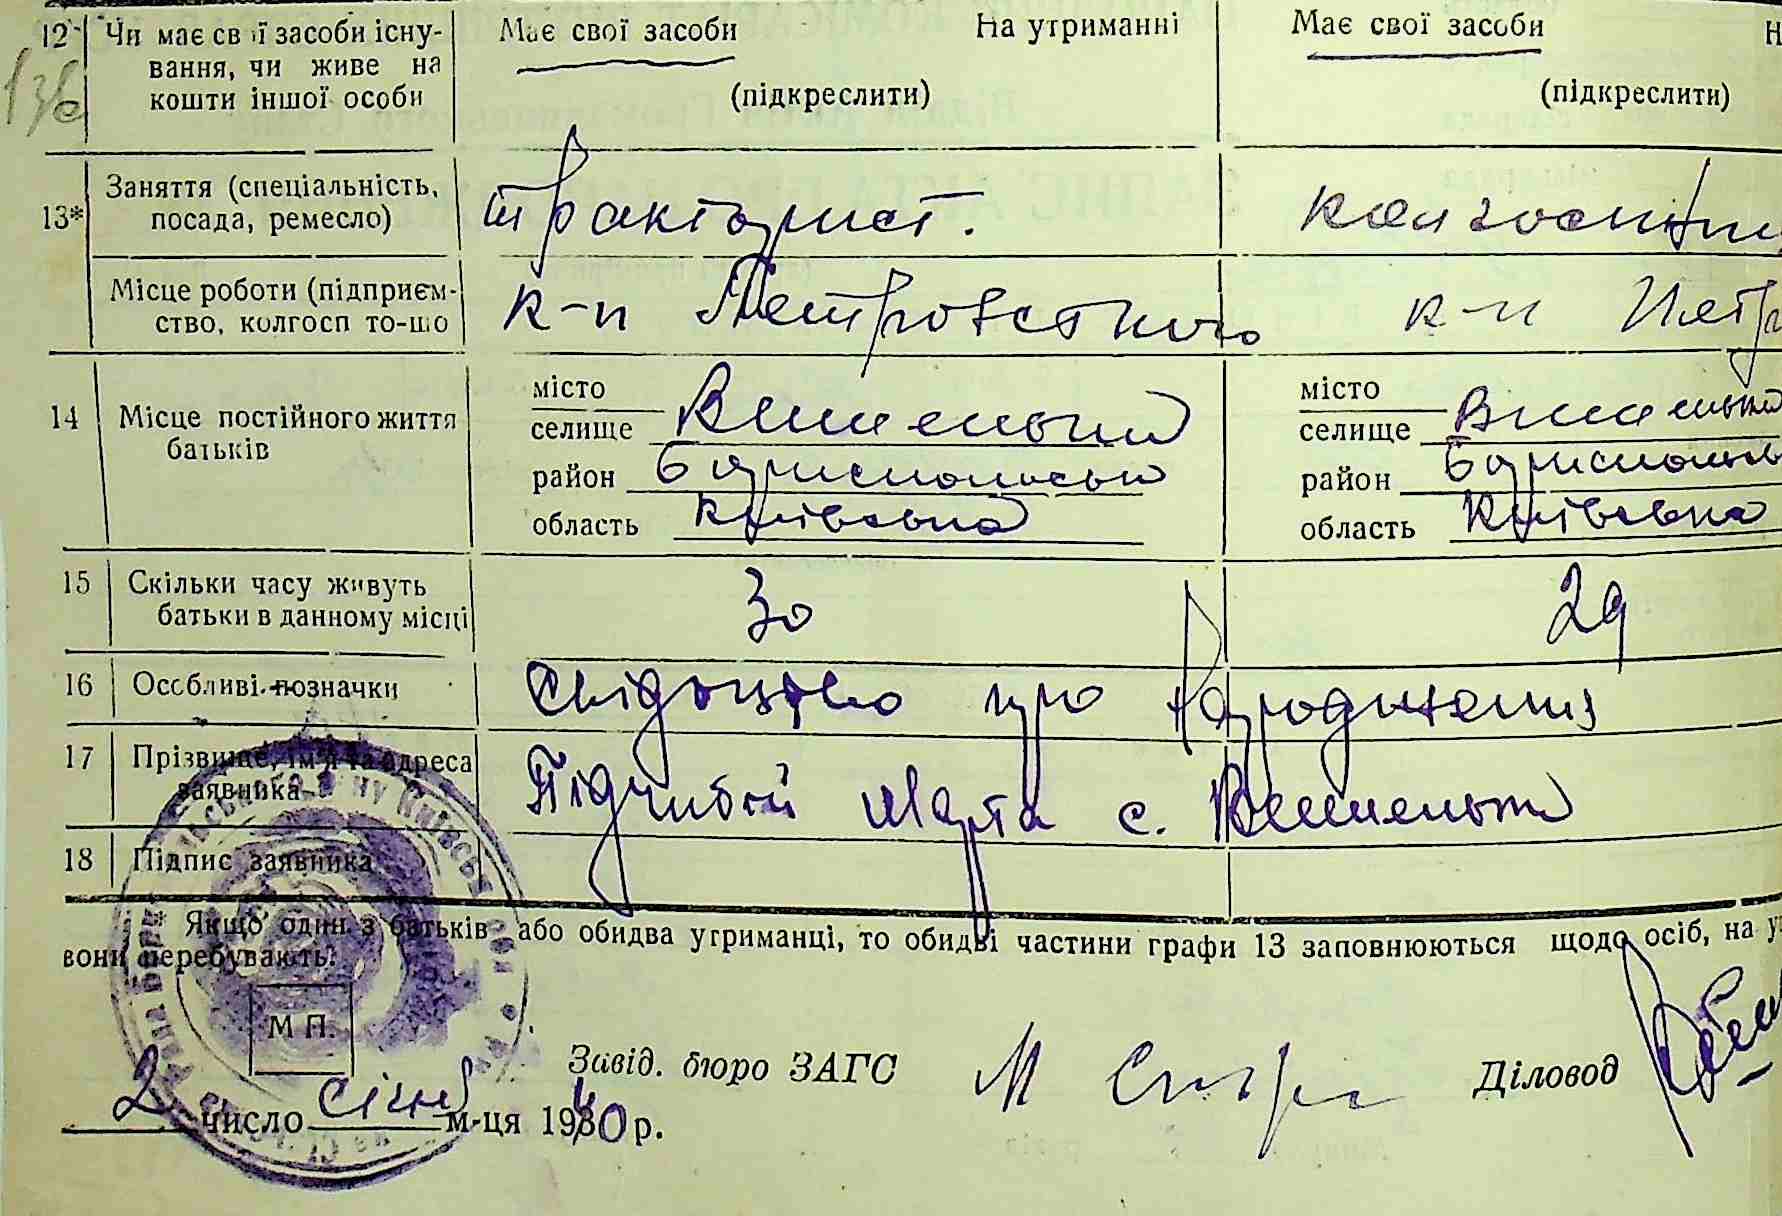 12 Чи має свої засоби існу- Має свої засоби На утриманні Має свої засоби Н
вання, чи живе на
кошти іншої особи (підкреслити) (підкреслити)
13* Заняття (спеціальність, тракторист. колгоспни
посада, ремесло)
Місце роботи (підприєм- к-п Петровського к-п Петр
ство, колгосп то-що
місто місто
14 Місце постійного життя Вишеньки Вишеньки
батьків селище селище
район Бориспольськ район Бориспольсь
область Київська область Київська
15 Скільки часу живуть 30 29
батьки в данному місці
16 Особливі позначки Свідоцтво про народження
17 Прізвище, ім'я та адреса Підчибій Марта с. Вишеньки
заявника
18 Підпис заявника
* Якщо один з батьків або обидва утриманці, то обидві частини графи 13 заповнюються щодо осіб, на у-
вони перебувають.
М П.
Завід. бюро ЗАГС Діловод
2 число січня м-ця 1940 р.